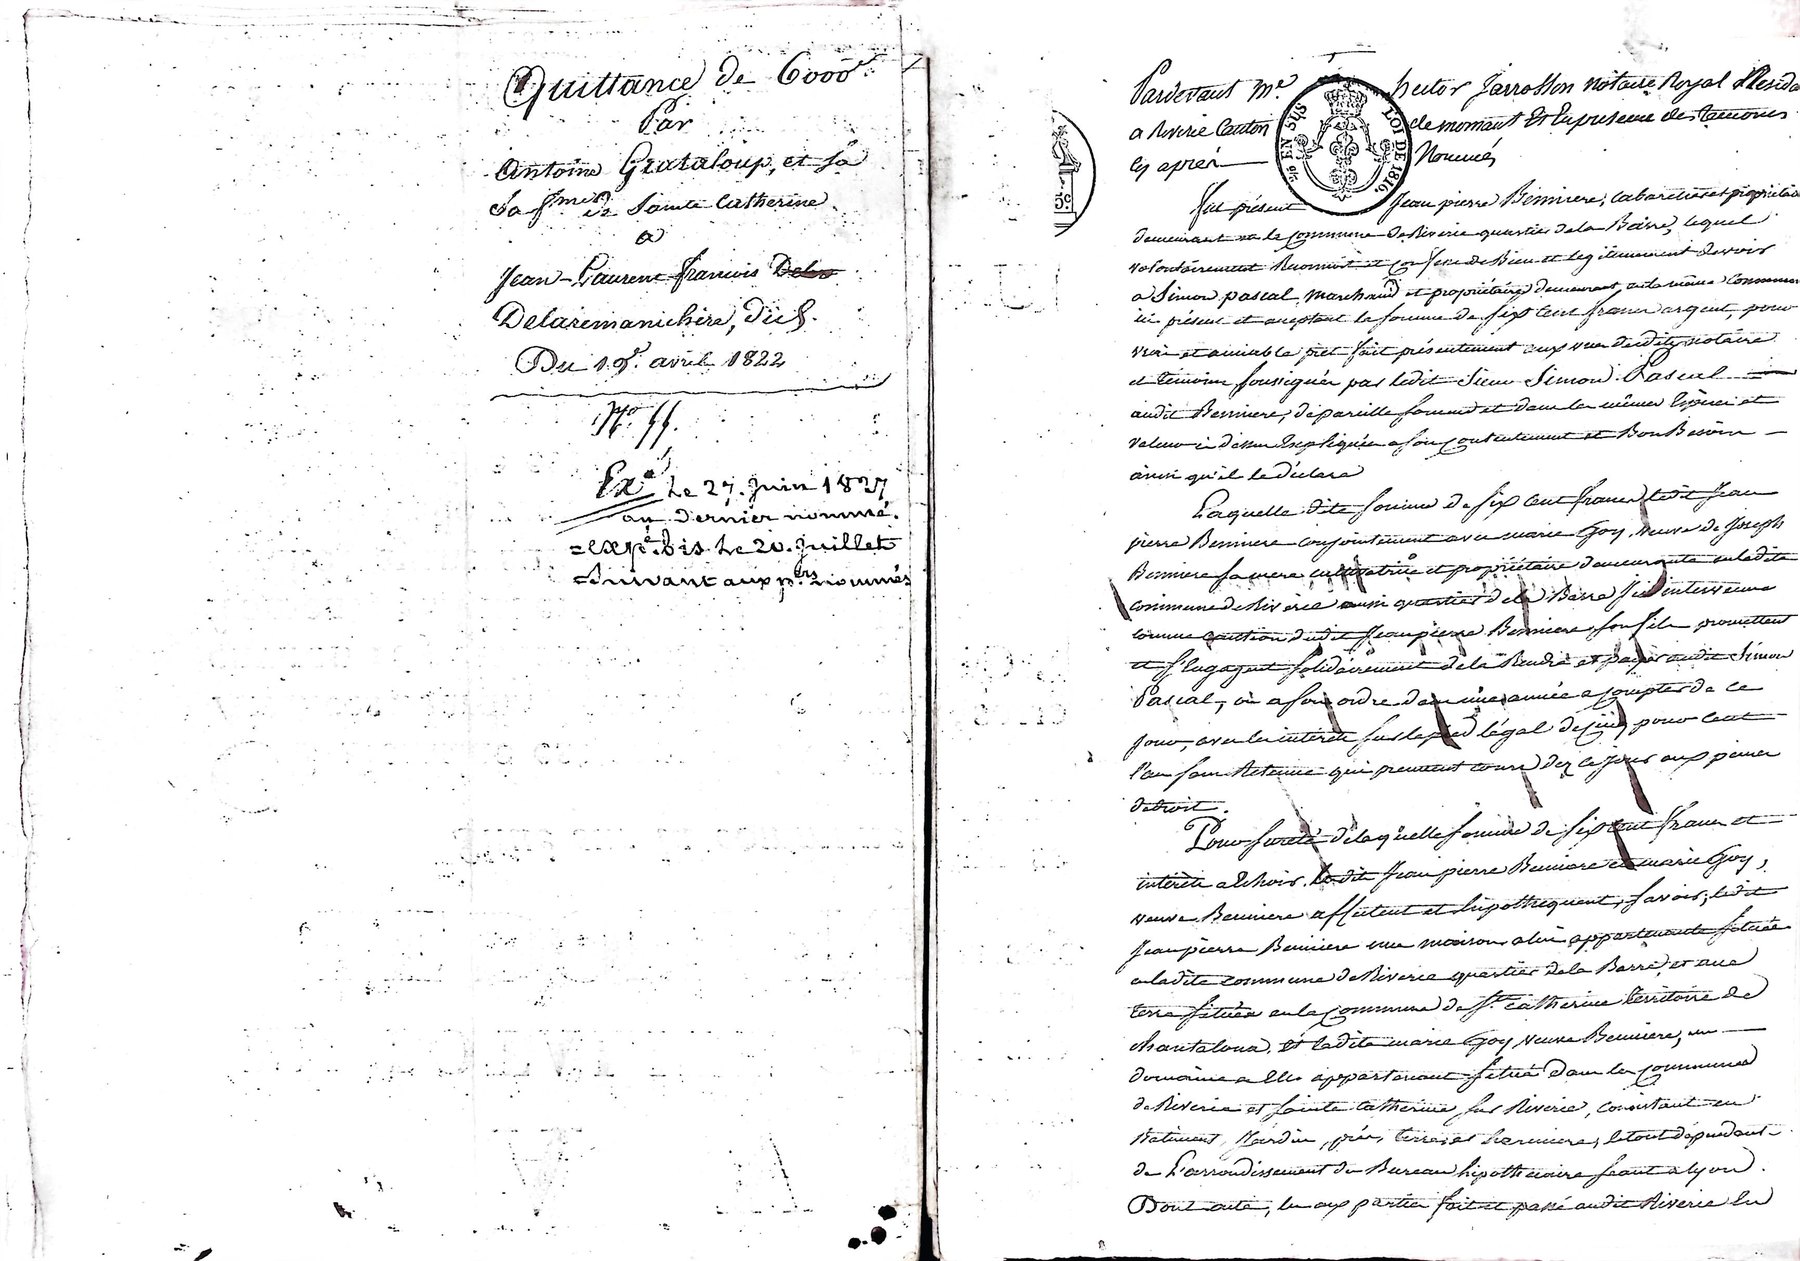 Quittance de 6000f
Par
Antoine Grataloup, et sa
sa fme de Sainte Catherine
a
Jean-Laurent-francois
Delaremanichère, dud.
Du 19. avril 1822
No. 55.
Exe Le 27. Juin 1827
au dernier nommé.
= expe. bis Le 20. Juillet
Suivant aux prs nommés
Pardevant Me hector Jarrosson notaire Royal Resida
a Riverie Canton de mornant Et En présence des Temoins
cy après Nommés
LOI DE 1816.
EN SUS
5c
fut présent Jean pierre Benniere, cabaretier et propriétaire
demeurant en la commune de Riverie quartier de la Barre, lequel
volontairement Reconnait et confesse de Bien et légitimement devoir
a Simon pascal, marchand et propriétaire demeurant, en la même commune
ici présent et acceptant la somme de six cent francs argent, pour
vrai et amiable pret fait présentement aux vues desdits notaire
et témoins soussignés par ledit Sieur Simon Pascal
audit Benniere, de pareille somme et dans les mêmes Espèces et
valeur ci dessus Expliquée a son contentement et Bon Besoin
ainsi qu'il le déclare
Laquelle dite somme de six cent francs ledit Jean
pierre Benniere conjointement avec marie Goy, veuve de Joseph
Benniere sa mere cultivatrice et propriétaire demeurante en ladite
commune de Riverie aussi quartier de la Barre ici intervenue
comme caution dudit Jean pierre Benniere son fils promettent
et s'engagent solidairement de la Rendre et payer audit Simon
Pascal, ou a son ordre dans une année a compter de ce
jour, avec les intérêts sur le pied légal de cinq pour cent
l'an sans Retenue qui prennent cours dez ce jour aux peines
de droit.
Pour sureté de laquelle somme de six cent francs et
intérêts a Echoir, ledit Jean pierre Benniere et marie Goy,
veuve Benniere affectent et hipothequent, savoir, ledit
Jean pierre Benniere une maison a lui appartenante située
en ladite commune de Riverie quartier de la Barre, et une
terre située en la commune de Ste Catherine territoire de
Chantaloua, Et ladite marie Goy veuve Benniere, un
domaine a Elle appartenant situé dans les communes
de Riverie et Sainte Catherine sur Riverie, consistant en
Batiment, Jardin, prés, terres et hermieres, le tout dépendant
de L'arrondissement du Bureau hipothécaire séant a lyon.
Dont acte, lu aux parties fait et passé audit Riverie En